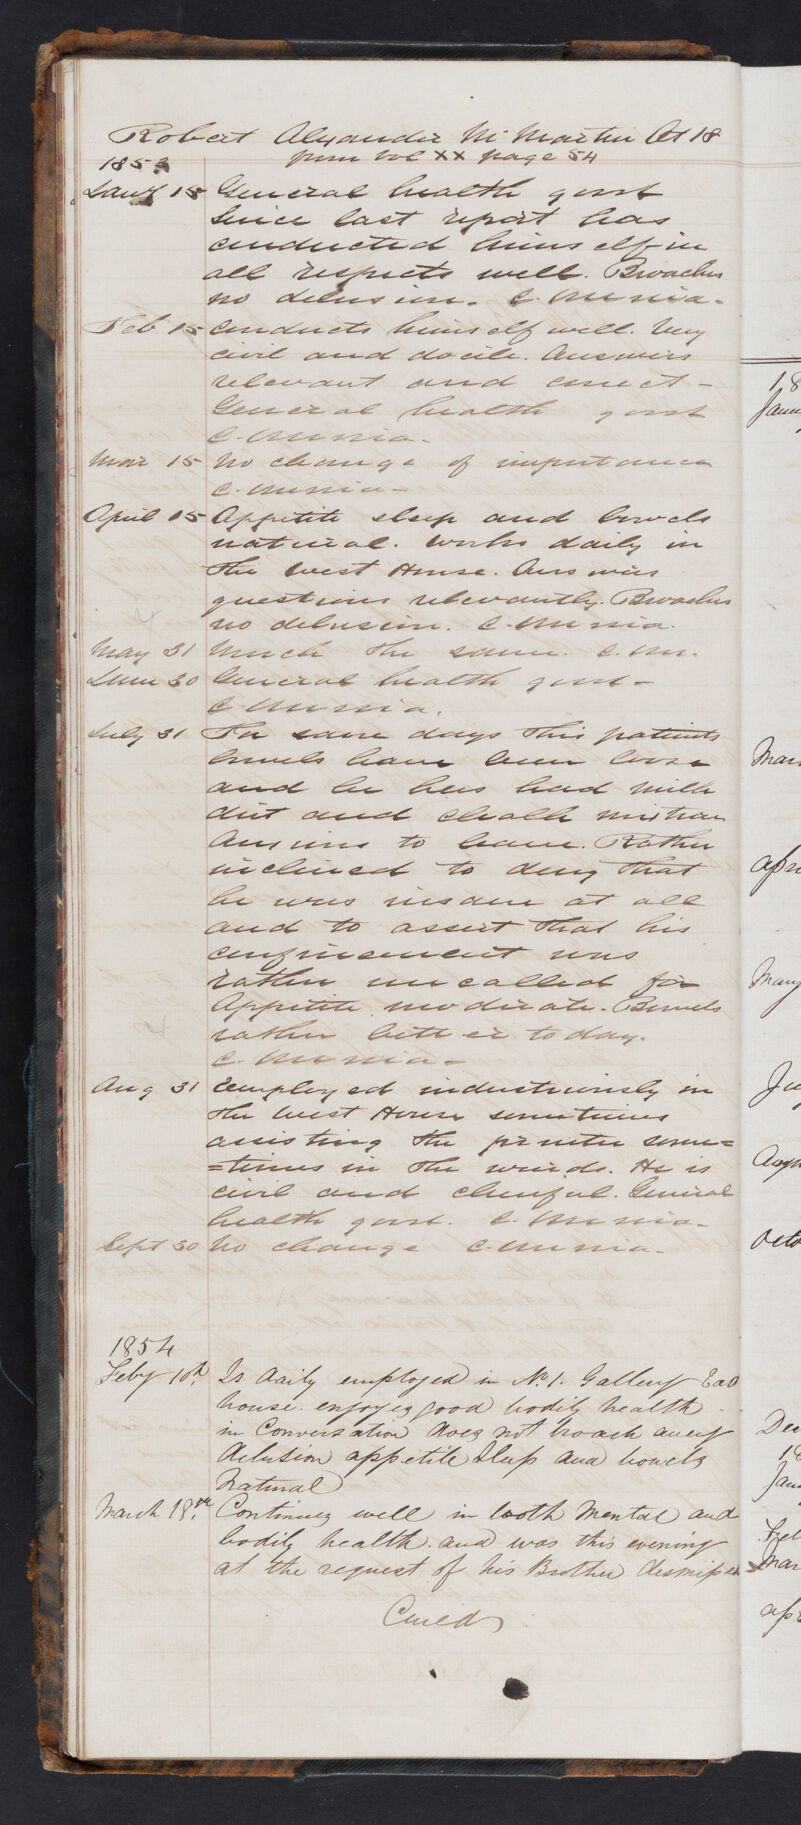 Robert Alexander McMartin Æt 18
1853 from Vol XX page 54
Jany 15 General health good
Since last report has
conducted himself in
all respects well. Broaches
no delusion. C. Mania -
Feb 15 Conducts himself well. Very
civil and docile. Answers
relevant and correct -
General health good
C. Mania -
Mar 15 No change of importance
C. Mania -
April 15 Appetite sleep and bowels
natural. Works daily in
the West House. Answers
questions relevantly. Broaches
no delusion. C. Mania.
May 31 Much the same. C. M.
June 30 General health good -
C Mania.
July 31 For some days this patients
bowels have been loose
and he has had milk
diet and chalk mixture
Anxious to leave. Rather
inclined to deny that
he was insane at all
and to assert that his
confinement was
rather uncalled for
Appetite moderate. Bowels
rather better to day.
C. Mania -
Aug 31 Employed industriously in
the West House sometimes
assisting the painter some=
=times in the wards. He is
civil and cheerful. General
health good. C. Mania -
Sept 30 No change C. Mania -
1854
Feby 10th. Is daily employed in No. 1. Gallery East
house. enjoyes good bodily health -
in Conversation does not broach any
delusion appetite Sleep and bowels
Natural
March 18th. Continues well in both Mental and
bodily health. and was this evening
at the request of his Brother dismissed
Cured
18
Janu
Mar
Apri
May
Ju
Aug
Octo
Dec
18
Jan
Feb
Mar
Apr